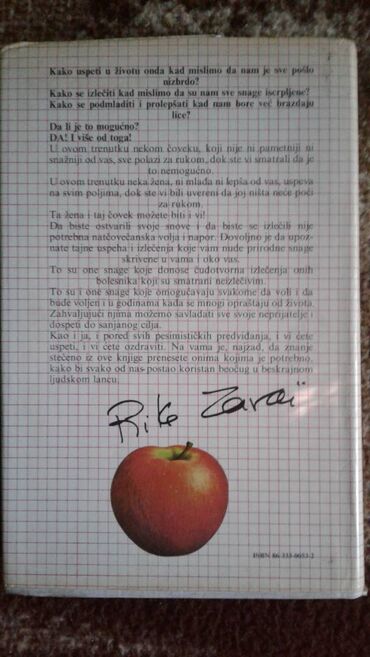 Kako uspeti u životu onda kad mislimo da nam je sve pošlo
nizbrdo?
Kako se izlečiti kad mislimo da su nam sve snage iscrpljene?
Kako se podmladiti i prolepšati kad nam bore već brazdaju
lice?
Da li je to mogućno?
DA! I više od toga!
U ovom trenutku nekom čoveku, koji nije ni pametniji ni
snažniji od vas, sve polazi za rukom, dok ste vi smatrali da je
to nemogućno.
U ovom trenutku neka žena, ni mlađa ni lepša od vas, uspeva
na svim poljima, dok ste vi bili uvereni da joj ništa neće poći
za rukom.
Ta žena i taj čovek možete biti i vi!
Da biste ostvarili svoje snove i da biste se izlečili nije
potrebna natčovečanska volja i napor. Dovoljno je da upoz-
nate tajne uspeha i izlečenja koje vam nude prirodne snage
skrivene u vama i oko vas.
To su one snage koje donose čudotvorna izlečenja onih
bolesnika koji su smatrani neizlečivim.
To su i one snage koje omogućavaju svakome da voli i da
bude voljen i u godinama kada se mnogi opraštaju od života.
Zahvaljujući njima možemo savladati sve svoje neprijatelje i
dospeti do sanjanog cilja.
Kao i ja, i pored svih pesimističkih predviđanja, i vi ćete
uspeti, i vi ćete ozdraviti. Na vama je, najzad, da znanje
stečeno iz ove knjige prenesete onima kojima je potrebno,
kako bi svako od nas postao koristan beočug u beskrajnom
ljudskom lancu.
Rika Zaraï
ISBN 86-333-0053-2